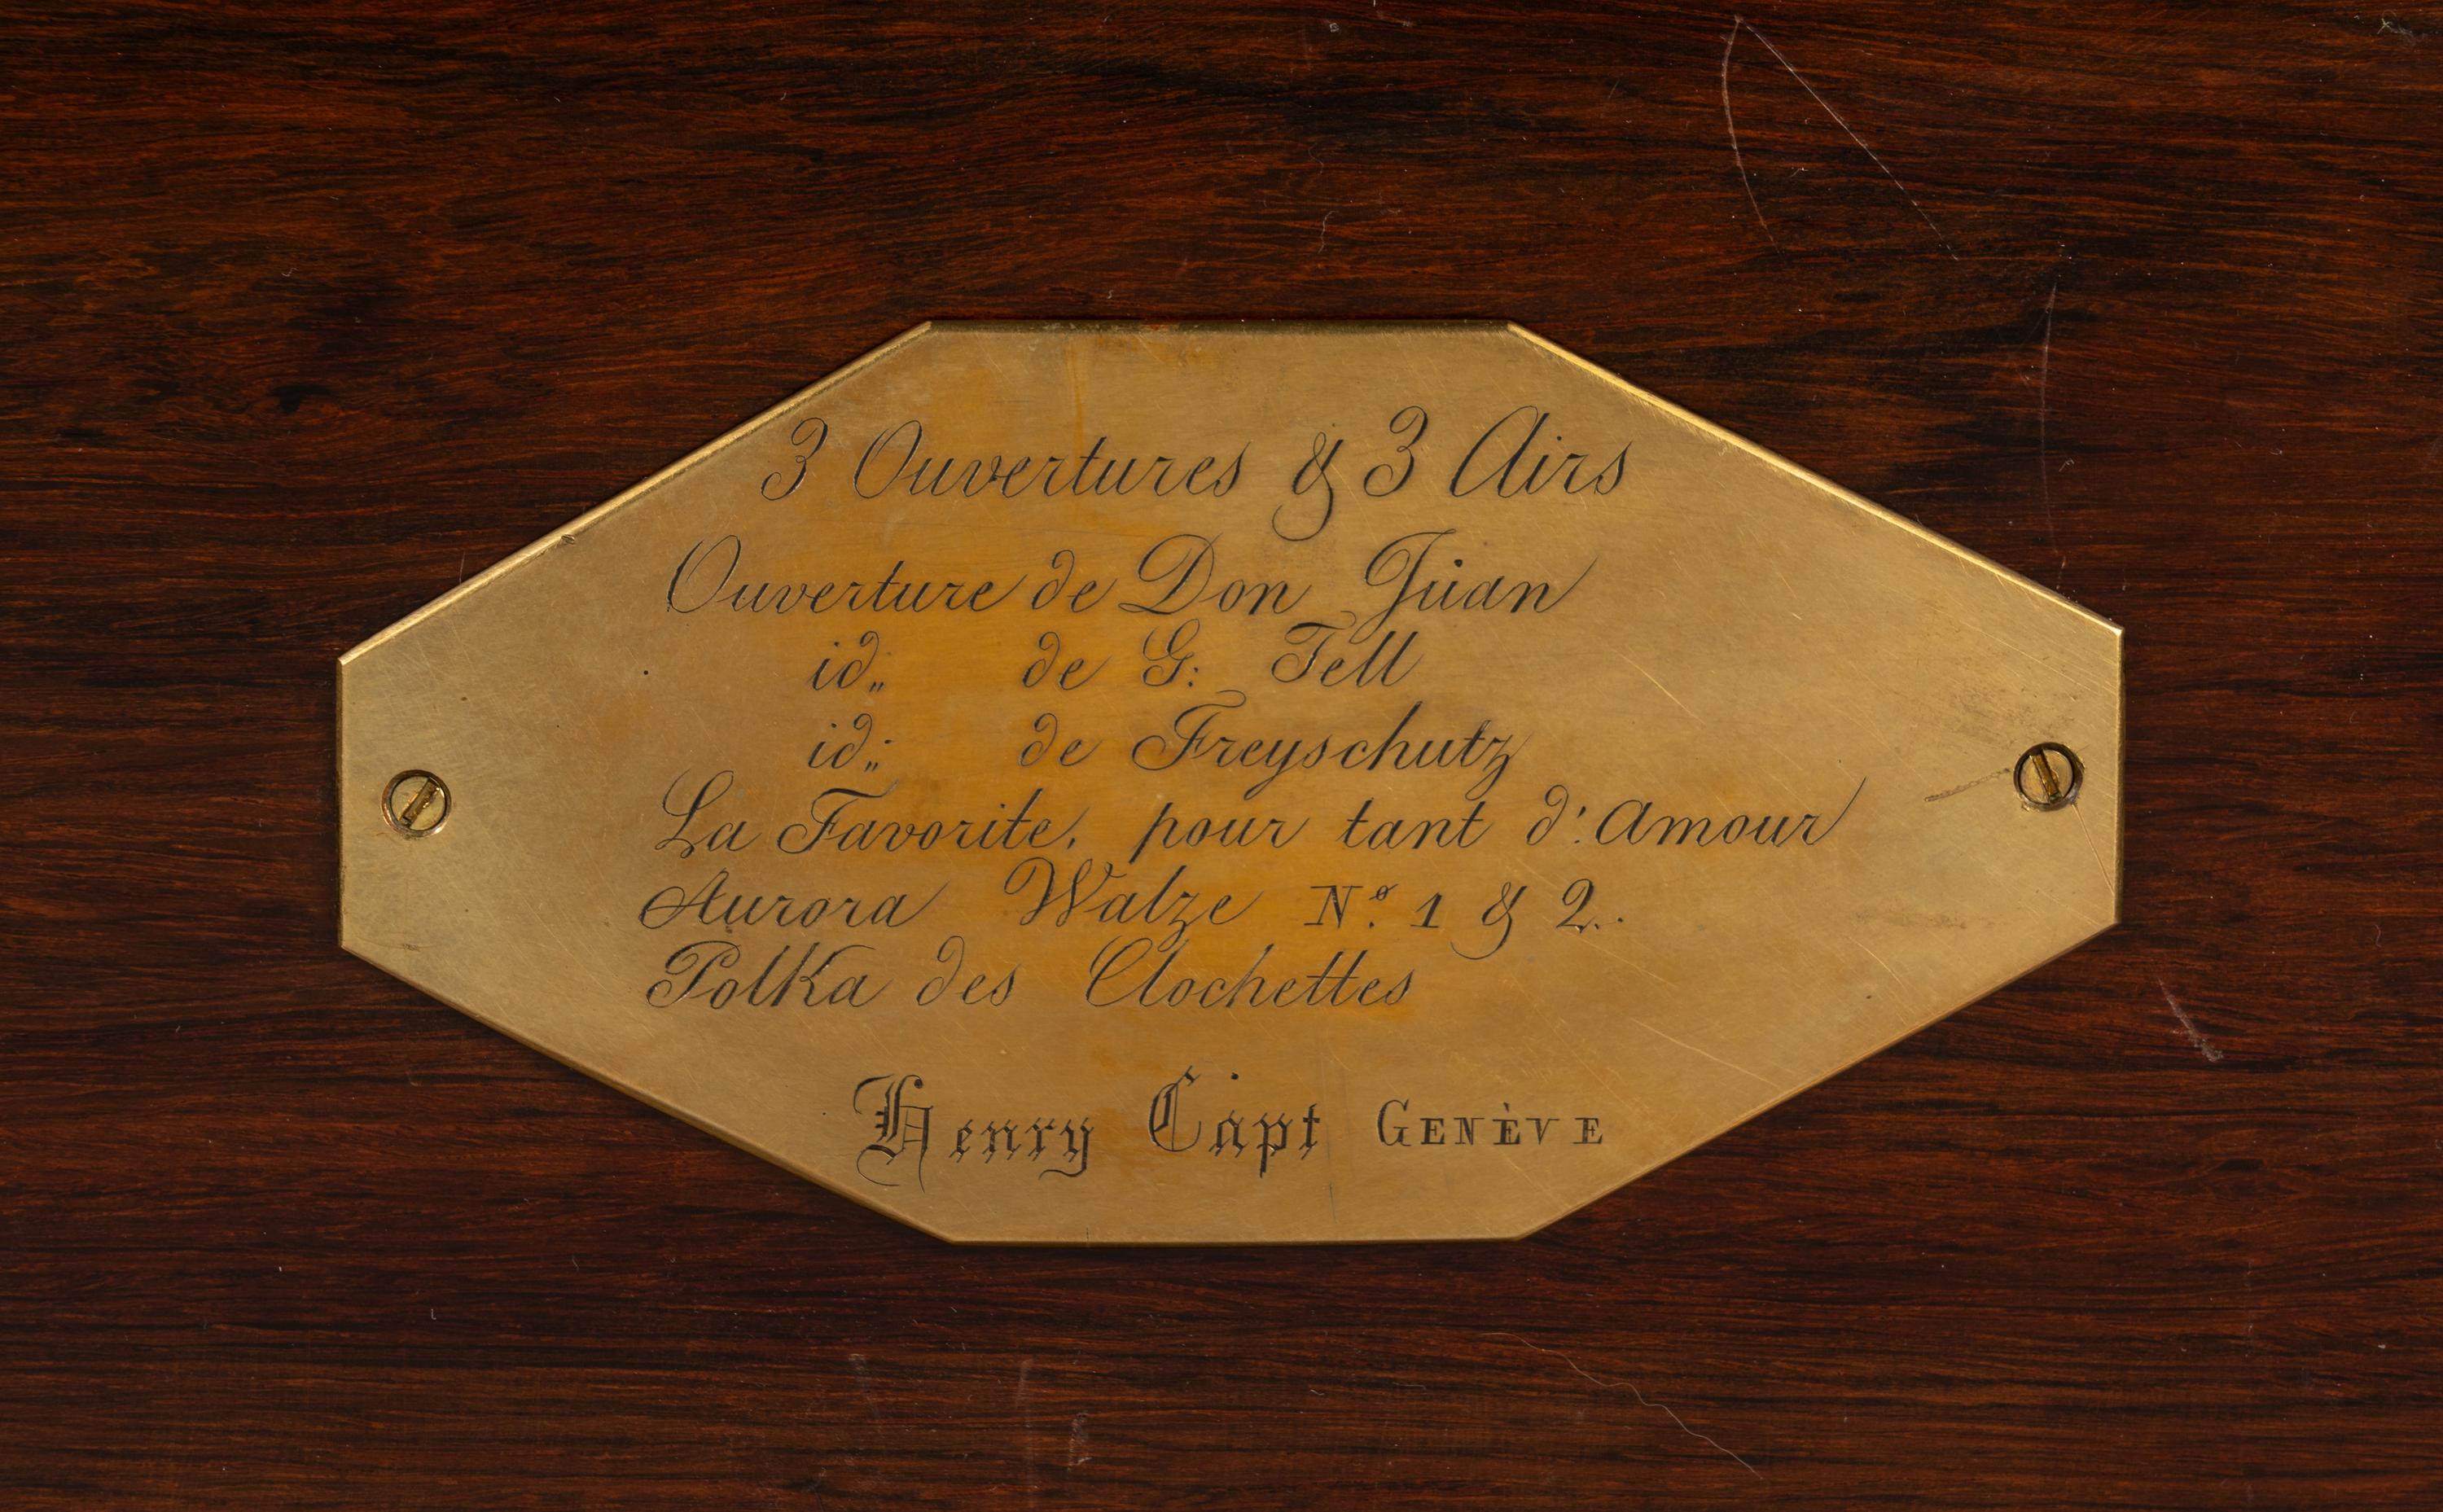 3 Ouvertures & 3 Airs
Ouverture de Don Juan
id„ de G: Tell
id„ de Freyschutz
La Favorite, pour tant d'Amour
Aurora Walze Nº 1 & 2.
Polka des Clochettes
Henry Capt GENÈVE